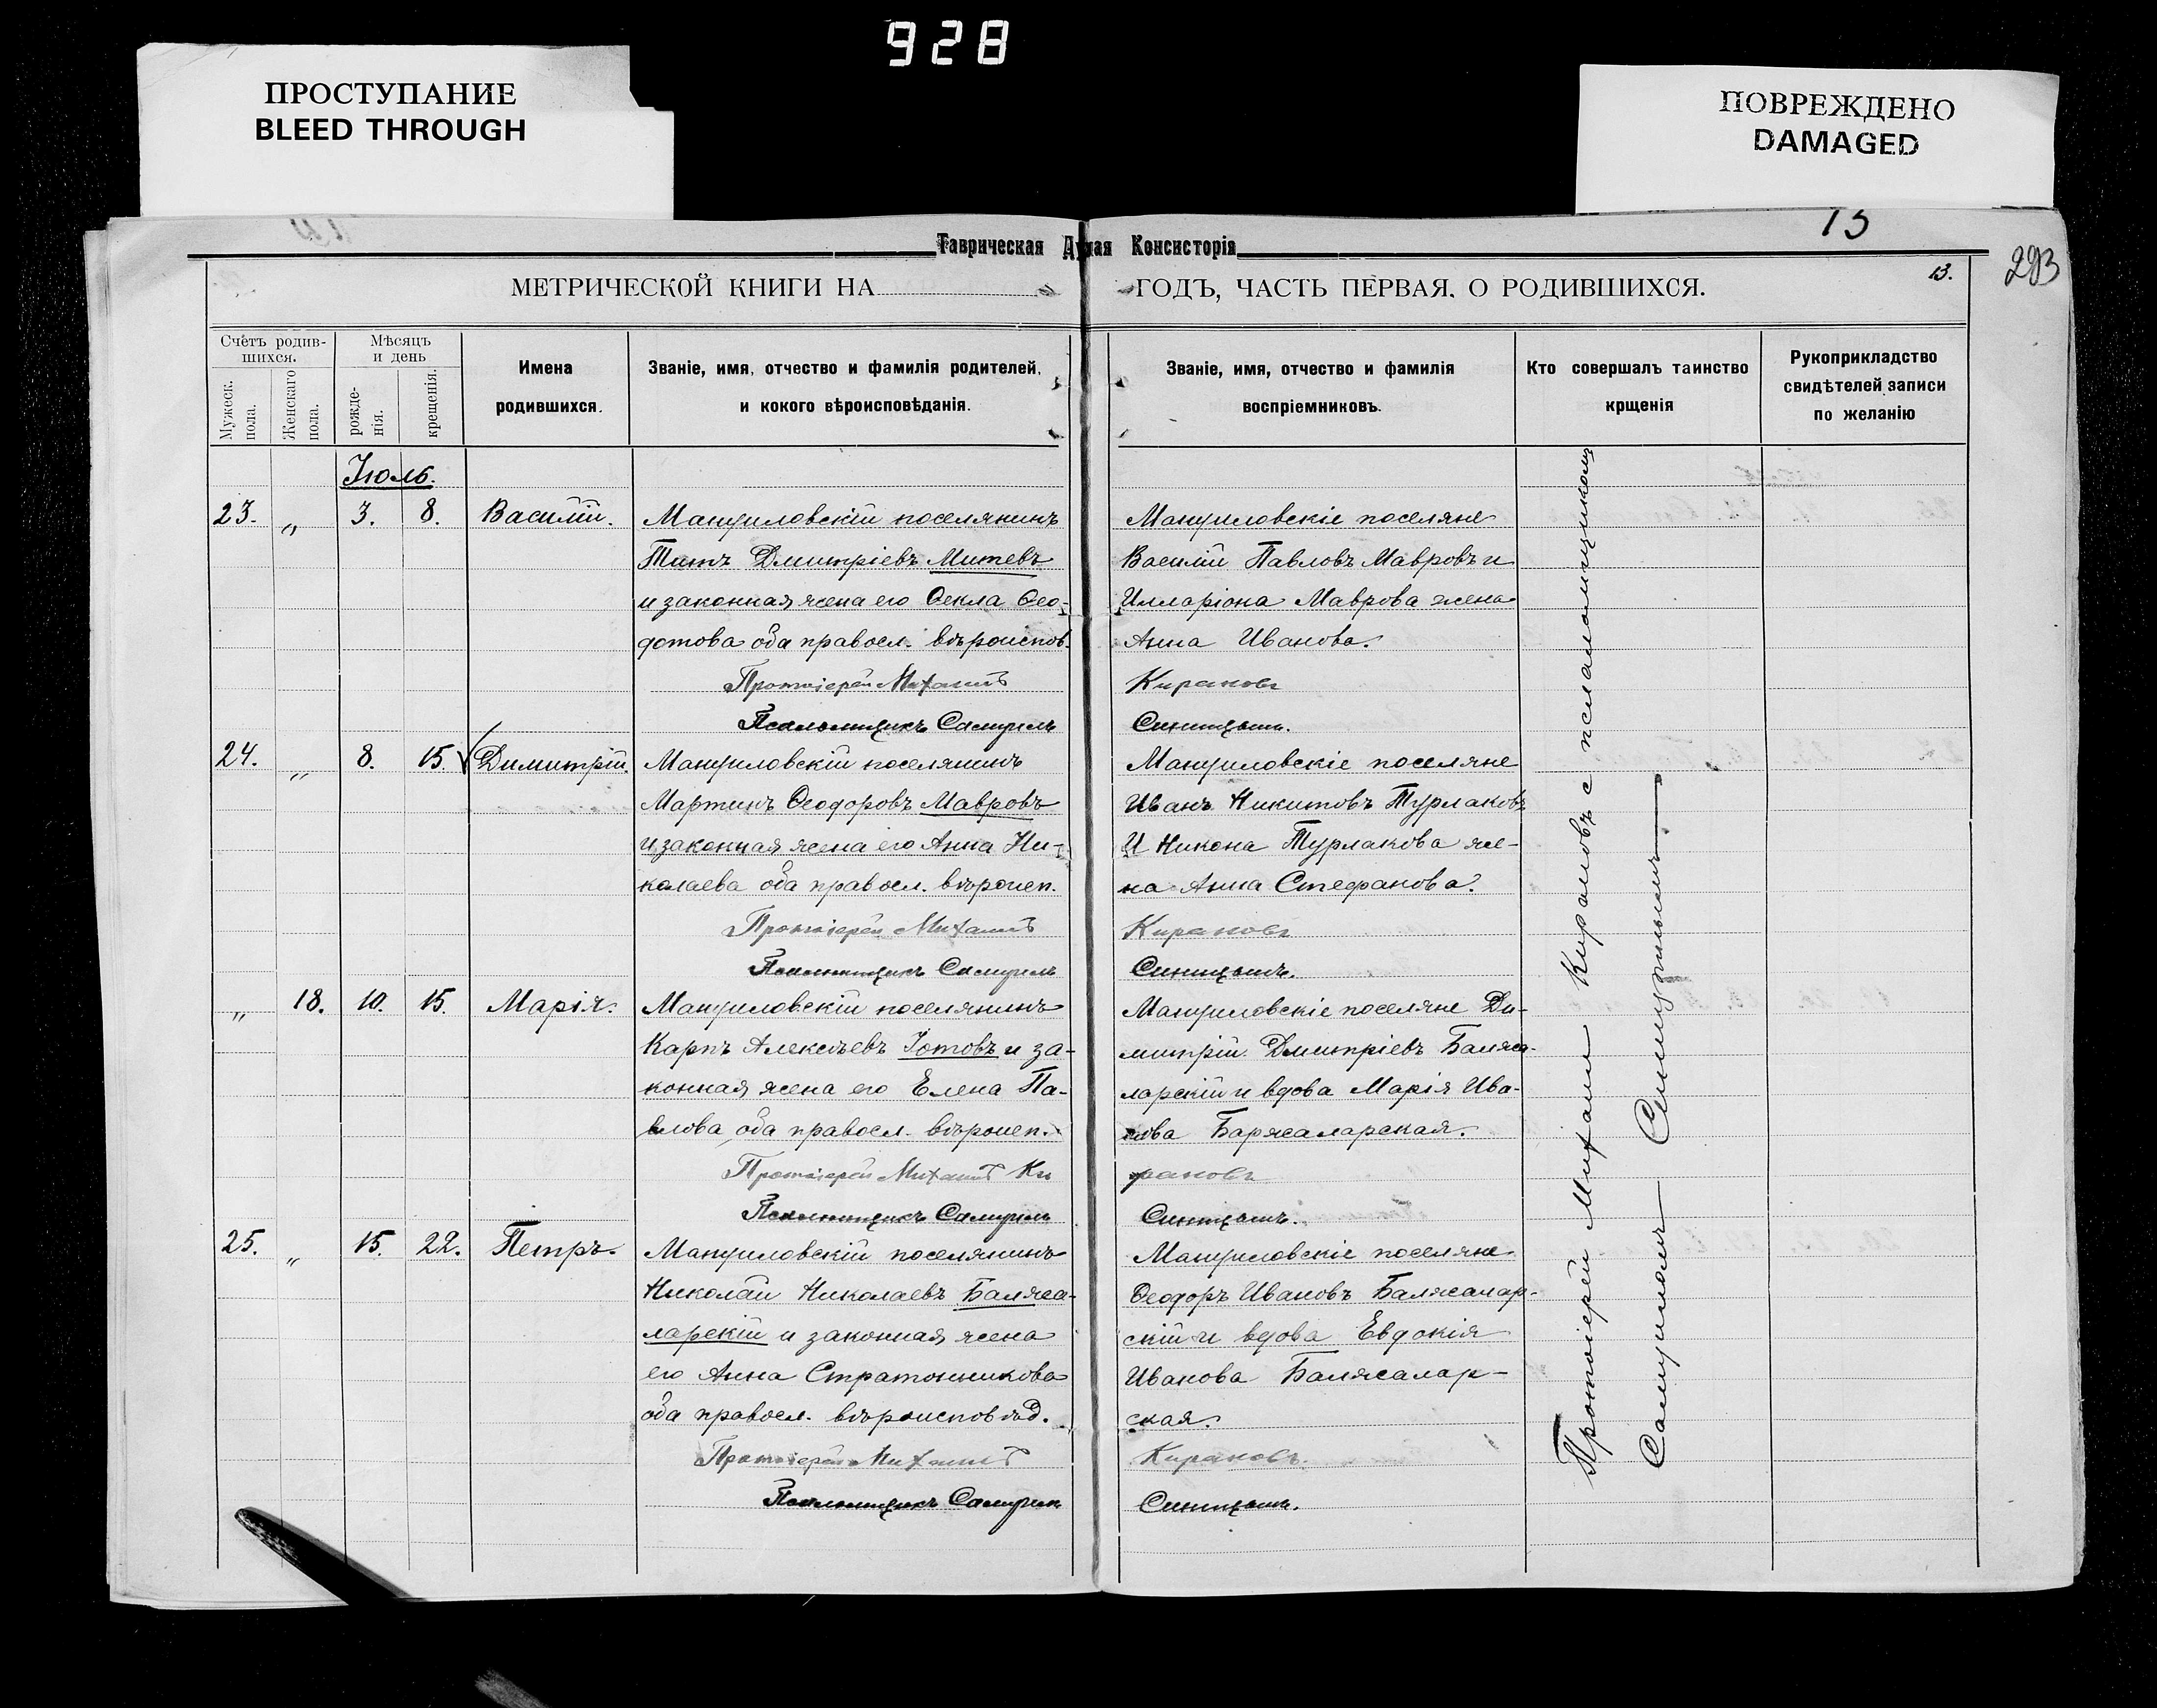 928
ПРОСТУПАНИЕ
BLEED THROUGH
ПОВРЕЖДЕНО
DAMAGED
13
Таврическая Духная Консисторія
293
МЕТРИЧЕСКОЙ КНИГИ НА ГОДЪ, ЧАСТЬ ПЕРВАЯ, О РОДИВШИХСЯ.
13.
Счетъ родив-
шихся.
Мужеск.
пола.
Женскаго
пола.
Мѣсяцъ
и день
рожде-
нія.
крещенія.
Имена
родившихся.
Званіе, имя, отчество и фамилія родителей,
и кокого вѣроисповѣданія.
Званіе, имя, отчество и фамилія
воспріемниковъ.
Кто совершалъ таинство
крщенія
Рукоприкладство
свидѣтелей записи
по желанію
Іюль.
23. " 3. 8. Василій. Мануиловскій поселянинъ
Титъ Дмитріевъ Митевъ
и законная жена его Ѳекла Ѳео-
дотова оба правосл. вѣроиспов.
Протоіерей Михаилъ
Псаломщикъ Самуилъ
Мануиловскіе поселяне
Василій Павловъ Мавровъ и
Илларіона Маврова жена
Анна Иванова.
Кирановъ
Синицынъ.
24. " 8. 15. Димитрій. Мануиловскій поселянинъ
Мартинъ Ѳеодоровъ Мавровъ
и законная жена его Анна Ни-
колаева оба правосл. вѣроисп.
Протоіерей Михаилъ
Псаломщикъ Самуилъ
Мануиловскіе поселяне
Иванъ Никитовъ Турлаковъ
И Никона Турлакова же-
на Анна Стефанова.
Кирановъ
Синицынъ.
" 18. 10. 15. Марія. Мануиловскій поселянинъ
Карпъ Алексѣевъ Іотовъ и за-
конная жена его Елена Па-
влова оба правосл. вѣроисп.
Протоіерей Михаилъ Ки
Псаломщикъ Самуилъ
Мануиловскіе поселяне Ди-
митрій Дмитріевъ Баляса-
ларскій и вдова Марія Ива-
нова Баржаларская.
рановъ
Синицынъ.
25. " 15. 22. Петръ. Мануиловскій поселянинъ
Николай Николаевъ Баляса-
ларскій и законная жена
его Анна Стратонникова
оба правосл. вѣроисповѣд.
Протоіерей Михаилъ
Псаломщикъ Самуил
Мануиловскіе поселяне
Ѳеодоръ Ивановъ Балясалар-
скій и вдова Евдокія
Иванова Балясалар-
ская.
Кирановъ.
Синицынъ.
Протоіерей Михаилъ Кирановъ с псаломщикомъ
Самуиломъ Синицынымъ